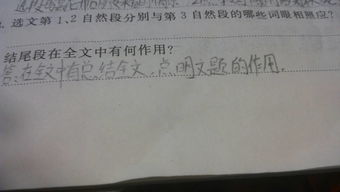 选文第1、2自然段分别与第3自然段的哪些词眼相照应?
结尾段在全文中有何作用?
答:在全文中有总结全文,点明文题的作用.